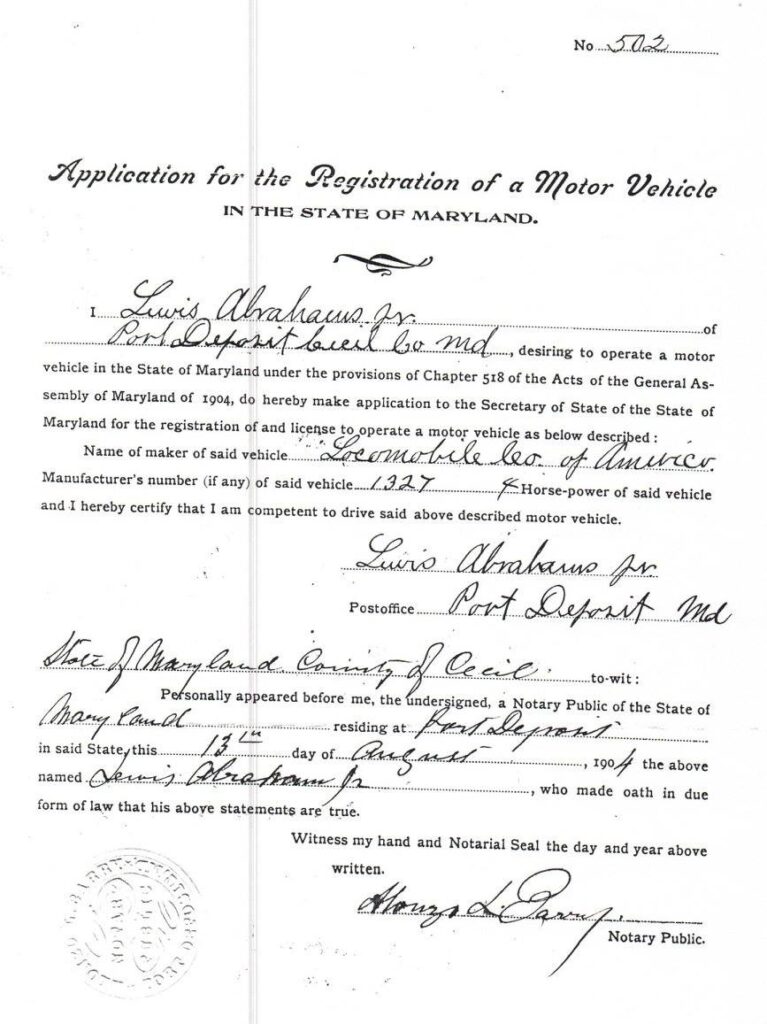 No 502
Application for the Registration of a Motor Vehicle
IN THE STATE OF MARYLAND.
I Lewis Abrahams Jr. of
Port Deposit Cecil Co Md, desiring to operate a motor
vehicle in the State of Maryland under the provisions of Chapter 518 of the Acts of the General As-
sembly of Maryland of 1904, do hereby make application to the Secretary of State of the State of
Maryland for the registration of and license to operate a motor vehicle as below described:
Name of maker of said vehicle "Locomobile Co. of America.
Manufacturer's number (if any) of said vehicle 1327 4 Horse-power of said vehicle
and I hereby certify that I am competent to drive said above described motor vehicle.
Lewis Abrahams Jr.
Postoffice Port Deposit Md
State of Maryland. County of Cecil. to-wit:
Personally appeared before me, the undersigned, a Notary Public of the State of
Maryland residing at Port Deposit
in said State, this 13th day of August, 1904 the above
named Lewis Abraham Jr, who made oath in due
form of law that his above statements are true.
Witness my hand and Notarial Seal the day and year above
written.
Alonzo L. Barry.
Notary Public.